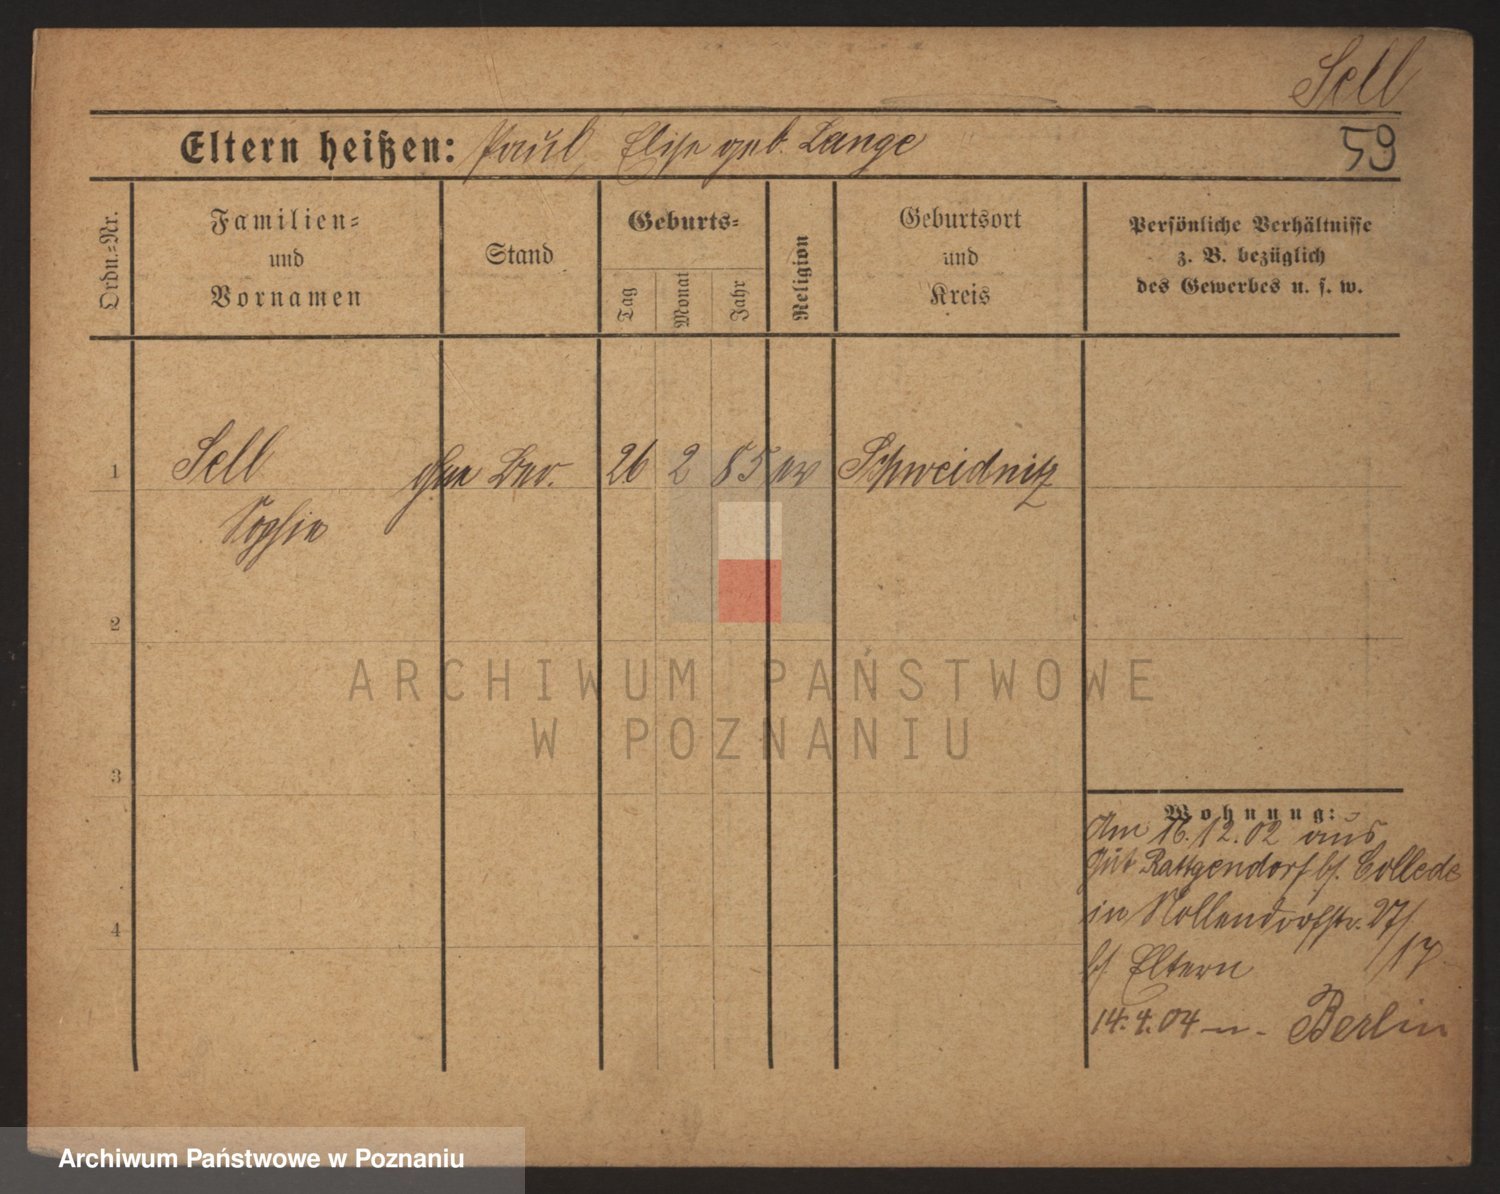 Sell
59
Eltern heißen: Paul, Elise geb. Lange
Ordn.-Nr.
Familien-
und
Vornamen
Stand
Geburts-
Tag
Monat
Jahr
Religion
Geburtsort
und
Kreis
Persönliche Verhältnisse
z. B. bezüglich
des Gewerbes u. s. w.
1 Sell ohne Ber. 26 2 85 ev Schweidnitz
Sophie
2
3
4
Wohnung:
Am 16.12.02 aus
Gut Rattgendorf b/. Collede
in Nollendorfstr. 27/
/17
b/ Eltern
14.4.04 n. Berlin
ARCHIWUM PAŃSTWOWE
W POZNANIU
Archiwum Państwowe w Poznaniu